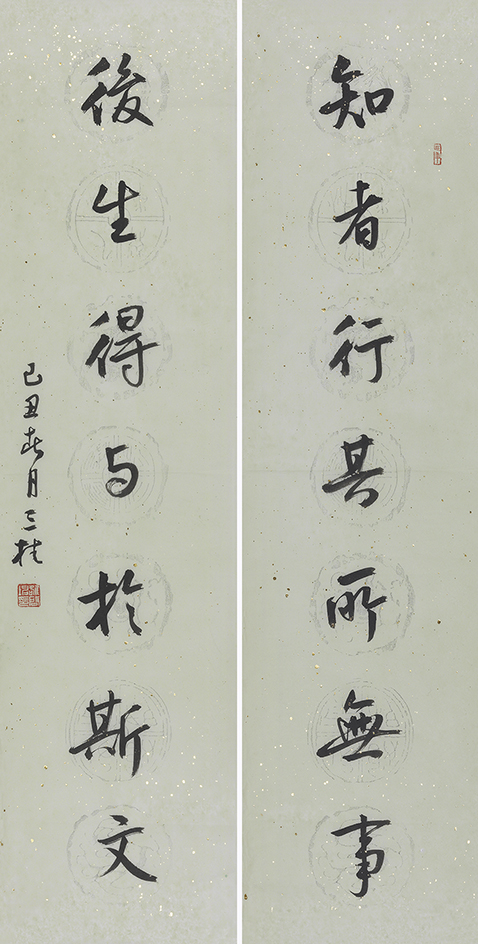 知者行其所無事
後生得与於斯文
己丑春月三桂